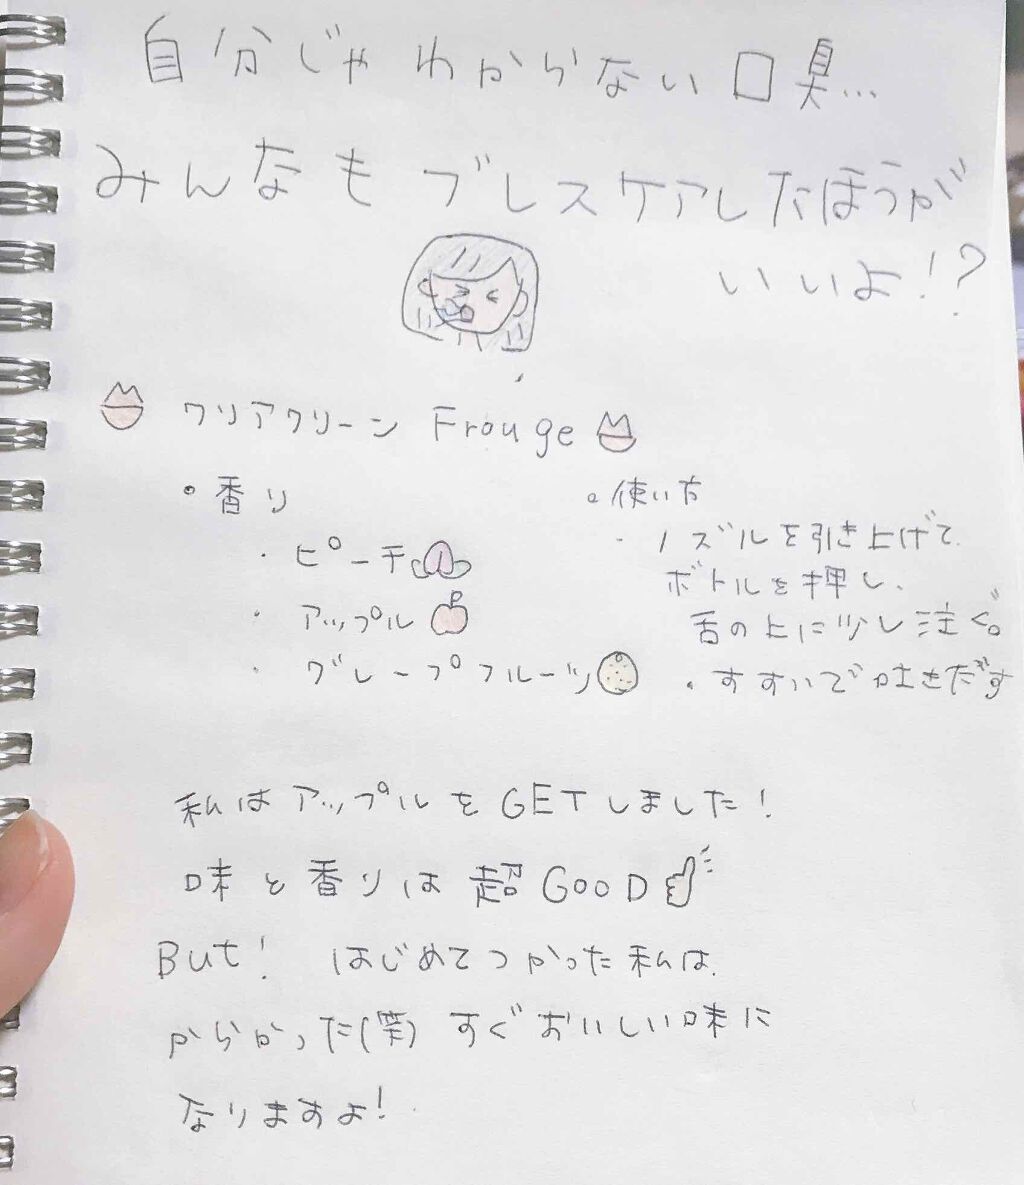 自分じゃわからない口臭...
みんなもブレスケアしたほうが
いいよ!?
クリアクリーン Frouge
・香り
・ピーチ
・アップル
・グレープフルーツ
。使い方
・ノズルを引き上げて、
ボトルを押し、
舌の上に少し注ぐ。
・すすいで吐きだす
私はアップルをGETしました!
味と香りは超GOOD
But! はじめてつかった私は、
からかった(笑) すぐおいしい味に
なりますよ!